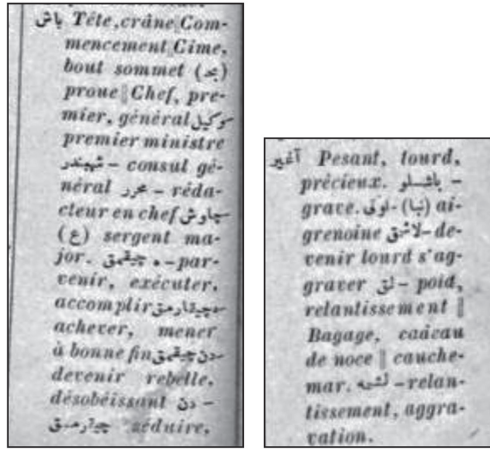 باش Tête, crâne ‖ Com-
mencement ‖ Cime,
bout sommet (بحر)
proue ‖ Chef, pre-
mier, général وكيل-
premier ministre
شهبندر – consul gé-
néral محرر – réda-
cteur en chef چاوش-
(ع) sergent ma-
jor. ه چیقمق –par-
venir, exécuter,
accomplir ه چیقارمق-
achever, mener
à bonne fin دن چیقمق-
devenir rebelle,
désobéissant دن –
چیقارمق séduire.
آغیر Pesant, lourd,
précieux. باشلو –
grave. اوتی- (نبا) ai-
grenoine لاشمق–de-
venir lourd s'ag-
graver لق – poid,
relantissement ‖
Bagage, cadeau
de noce ‖ cauche-
mar. لشمه –relan-
tissement, aggra-
vation.